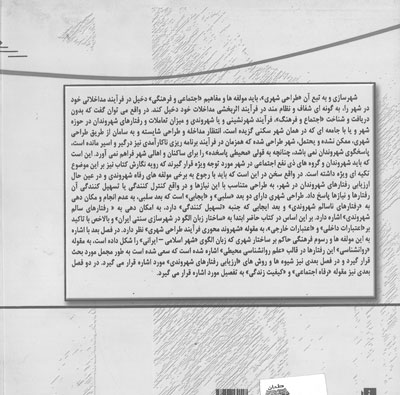 شهرسازی و به تبع آن «طراحی شهری»، باید مولفه ها و مفاهیم «اجتماعی و فرهنگی» دخیل در فرآیند مداخلاتی خود
در شهر را، به گونه ای شفاف و نظام مند در فرآیند اثربخشی مداخلات خود دخیل کند. در واقع می توان گفت که بدون
دریافت و شناخت «اجتماع و فرهنگ»، فرآیند شهرنشینی و یا شهروندی و میزان تعاملات و رفتارهای شهروندان در حوزه
شهر و یا با جامعه ای که در همان شهر سکنی گزیده است، انتظار مداخله و طراحی شایسته و به سامان از طریق طراحی
شهری، ممکن نشده و یحتمل، شهر طراحی شده که همزمان در فرآیند برنامه ریزی ناکارآمدی نیز درگیر و اسیر مانده است،
پاسخگوی شهروندان نمی باشد، چنانچه به قولی «محیطی پاسخده» را برای ساکنان و اهالی شهر فراهم نمی آورد. این است
که باید شهروندان و گروه های ذی نفع اجتماعی در شهر مورد توجه ویژه قرار گیرند که رویه نگارش کتاب نیز بر این موضوع
تکیه ای ویژه داشته است. در واقع سخن در این است که باید با رجوع به برخی مولفه های رفاه شهروندی و در عین حال
ارزیابی رفتارهای شهروندان در شهر، به طراحی متناسب با این نیازها و در واقع کنترل کنندگی یا تسهیل کنندگی آن
رفتارها و نیازها پاسخ داد. طراحی شهری دارای دو بعد «سلبی» و «ایجابی» است که بعد سلبی، به عدم انجام و مکان دهی
به «رفتارهای ناسالم شهروندی» و بعد ایجابی که جنبه «تسهیل کنندگی» دارد، به امکان دهی به «رفتارهای سالم
شهروندی» اشاره دارد. بر این اساس در کتاب حاضر ابتدا به «ساختار زبان الگو در شهرسازی سنتی ایران» و بالاخص با تاکید
بر «اعتبارات داخلی» و «اعتبارات خارجی»، به مقوله «شهروند محوری فرآیند طراحی شهری» نظر دارد. در فصل بعد با اشاره
به این مولفه ها و رسوم فرهنگی حاکم بر ساختار شهری که زبان الگوی «شهر اسلامی - ایرانی» را شکل داده است، به مقوله
«روانشناسی» این رفتارها در قالب «علم روانشناسی محیطی» اشاره شده است که سعی شده است به طور مجمل مورد بحث
قرار گیرد و در فصل بعدی نیز شیوه ها و روش های «ارزیابی رفتارهای شهروندی» مورد اشاره قرار می گیرد. در دو فصل
بعدی نیز مقوله «رفاه اجتماعی» و «کیفیت زندگی» به تفصیل مورد اشاره قرار می گیرد.